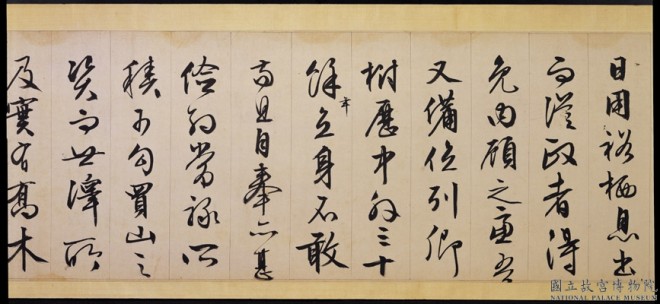 日用裕栖息出
而從政者得
免内顧之吾
又備位列卿
樹歷中外三十
餘年立身不敢
苟且自奉亦甚
儉約常祿所
積可勾買山之
資而世澤所
及實有喬木
國立故宮博物院
NATIONAL PALACE MUSEUM